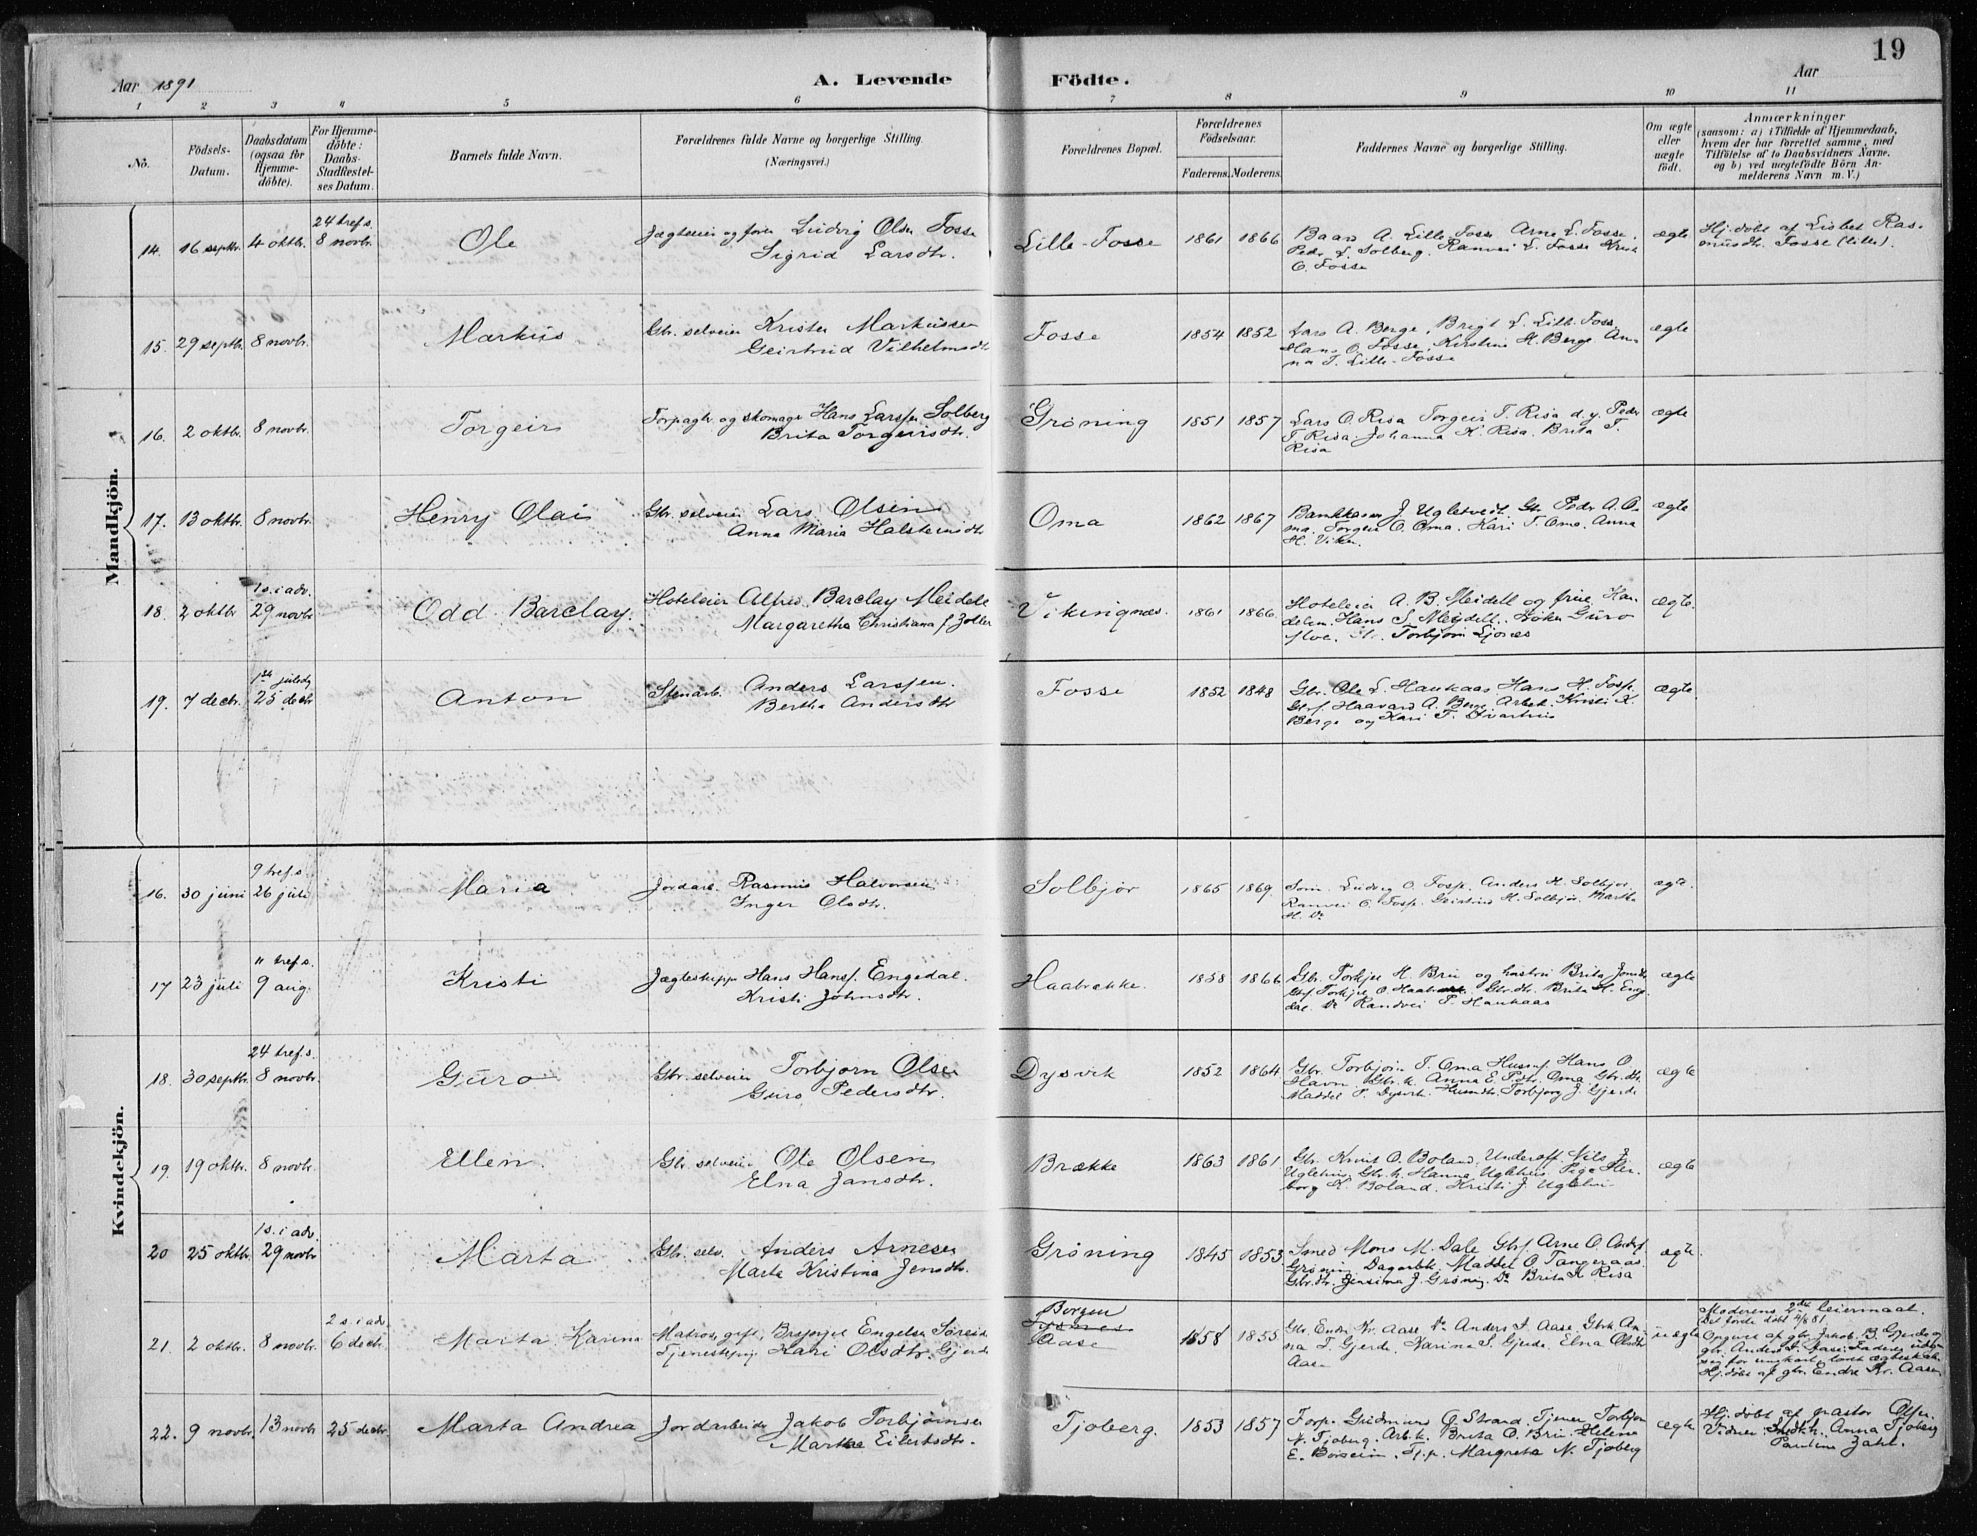 19
Aar 1891
A. Levende Födte.
Aar
1 2 3 4 5 6 7 8 9 10 11
No.
Födsels-Datum.
Daabsdatum (ogsaa for Hjemme-döbte).
For Hjemme-döbte: Daabs-Stadfestel-ses Datum.
Barnets fulde Navn.
Forældrenes fulde Navne og borgerlige Stilling.
(Næringsvei.)
Forældrenes Bopæl.
Forældrenes Födselsaar.
Faderens. Moderens.
Faddernes Navne og borgerlige Stilling.
Om ægte eller uægte födt.
Anmærkninger
(saasom: a) i Tilfælde af Hjemmedaab,
hvem der har forrettet samme, med
Tilföielse af to Daabsvidners Navne,
og b) ved uægtefödte Börn An-
melderens Navn m. V.)
Mandkjön.
14. 16 septbr. 4 oktbr. 24 tref.s. 8 novbr. Ole
Jægteeier og fører Ludvig Olsen Fosse
Sigrid Larsdtr.
Lille-Fosse 1861 1866
Baard A. Lille-Fosse Arne L. Fosse.
Peder L. Solberg. Ranvei L. Fosse
O. Fosse
ægte
Hj. döbt af Lisbet Ras-
musdtr. Fosse (lille).
15. 29 septbr. 8 novbr. Markus
Gbr. selveier Krister Markussen
Geirtrud Vilhelmsdtr
Fosse 1854 1852
Lars A. Berge, Brigt L. Lille-Foss
Hans O. Fosse, Kirstine H. Berge An-
na T. Lille-Fosse
ægte
16. 2 oktbr. 8 novbr. Torgeir
og skomager Hans Larssen Solberg
Brita Torgeirsdtr.
Grøning 1851 1857
Lars O. Risa Torgeir T. Risa d.y. Peder
T. Risa. Johanna K. Risa. Brita T.
Risa
ægte
17. 13 oktbr. 8 novbr. Henry Olai
Gbr. selveier Lars Olsen
Anna Maria Halsteinsdtr
Oma 1862 1867
J. Ugletvedt. Gbr. Peder A. O-
ma. Torgeir O. Oma. Kari T. Oma. Anna
H. Viken.
ægte
18. 2 oktbr 1 s. i adv. 29 novbr Odd Barclay.
Hoteleier Alfred Barclay Meidell
Margaretha Christiana f. Zoller
Vikingnæs. 1861 1866
Hoteleier A. B. Meidell og frue, Han-
delsm. Hans S. Meydell. Guro
Moe. Torbjørn
ægte.
19. 7 decbr. 1ste juledg 25 decbr Anton
Stenarb. Anders Larssen.
Bertha Andersdtr
Fosse 1852 1848
Gbr. Ole L. Haukaas Hans H. Foss.
Gbrs. Haavard A. Berge Arbet. Kristi K.
Berge og Kari T.
ægte.
Kvindekjön.
16. 30 juni 9 tref.s. 26 juli Maria
Jordarb. Rasmus Halvorsen
Inger Olsdtr.
Solbjør 1865 1869.
Ludvig O. Foss. Anders H. Solbjør.
Ranvei O. Foss. H. Solbjør. Martha
H. Do
ægte.
17 23 juli 11 tref.s. 9 aug. Kristi
Jægteskipper Hans Hanss. Engedal.
Kristi Johnsdtr.
Haabrække. 1858 1866
Gbr. Torkjel H. Bru og hustru Brita
Gbrs. Torkjel O. Gbr.dtr. Brita H. Enge-
dal. Do Randvei P. Haukaas
ægte
18. 30 septbr. 24 tref.s. 8 novbr. Guro
Gbr. selveier Torbjørn Olsen
Guro Pedersdtr.
Dysvik 1852 1864
Gbr. Torbjørn T. Oma Hans O.
Havn. Gbr.k. Anna E. Oma Gbr.dtr.
Maddel P. Dysvik. Torbjørg J. Gjerde
ægte
19. 19 oktbr. 8 novbr. Ellen.
Gbr. selveier Ole Olsen
Elna Jansdtr.
Brække 1863 1861
Gbr. Knut O. Boland. Underoff. Nils J.
Ugletvei Gbr.k. Hanna Ugletvei. Pige Her-
borg K. Boland. Kristi J.
ægte
20 25 oktbr. 1 s. i adv. 29 novbr Marta
Gbr. selv. Anders Arnesen
Marta Kristina Jensdtr.
Grøning 1845 1853
Smed Mons M. Dale Gbrs. Arne O.
Grøning Maddel O Tangeraas.
Gbr.dtr. Jensina J. Grønig. Do Brita K. Risa
ægte.
21. 2 oktbr. 8 novbr. 2 s. i adv. 6 decbr. Marta Karina
Matros, gift, Engelsen
Tjenestepig Kari Olsdtr. Gjerde
Bergen
Aase
1858 1855
Gbr. Endre Kr. Aase Do Anders I. Aase, Gbrk An-
na T. Gjerde. Karina S. Gjerde. Elna Olsdtr
Aase
uægte
Moderens 2det leiermaal.
Det første døbt 81.
Opgivet af gbr. Jakob B. Gjerde og
gbr. Anders I. Aase; Faderen
sig for ungkarl
Hj. døbt af gbr. Endre Kr. Aasen
22. 9 novbr. 13 novbr 25 decbr Marta Andrea
Jordarbeider Jakob Torbjørnsen
Marta Eilertsdtr.
Tjoberg. 1853 1857
Forp. Gudmund O Strand. Tjener Torbjørn
N. Tjoberg. Arb.k. Brita O. Bru. Helene
E. Børseim. Tj.p. Margreta N. Tjoberg
ægte
Hj. døbt af pastor Olsen.
Vidner: Anna Tjoberg
Pauline Zahl.